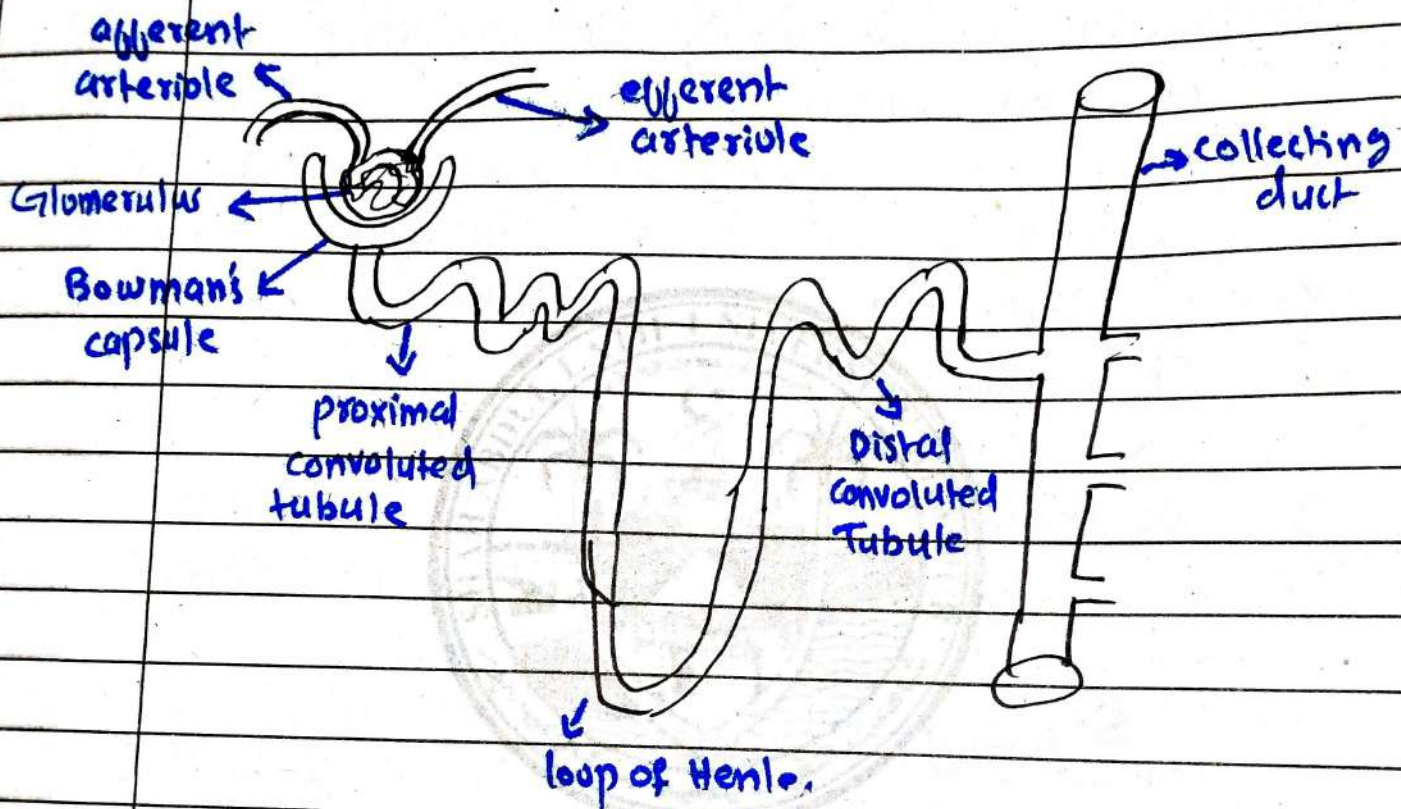 afferent
arteriole
efferent
arteriole
collecting
duct
Glomerulus
Bowman's
capsule
proximal
convoluted
tubule
Distal
convoluted
Tubule
loop of Henle.